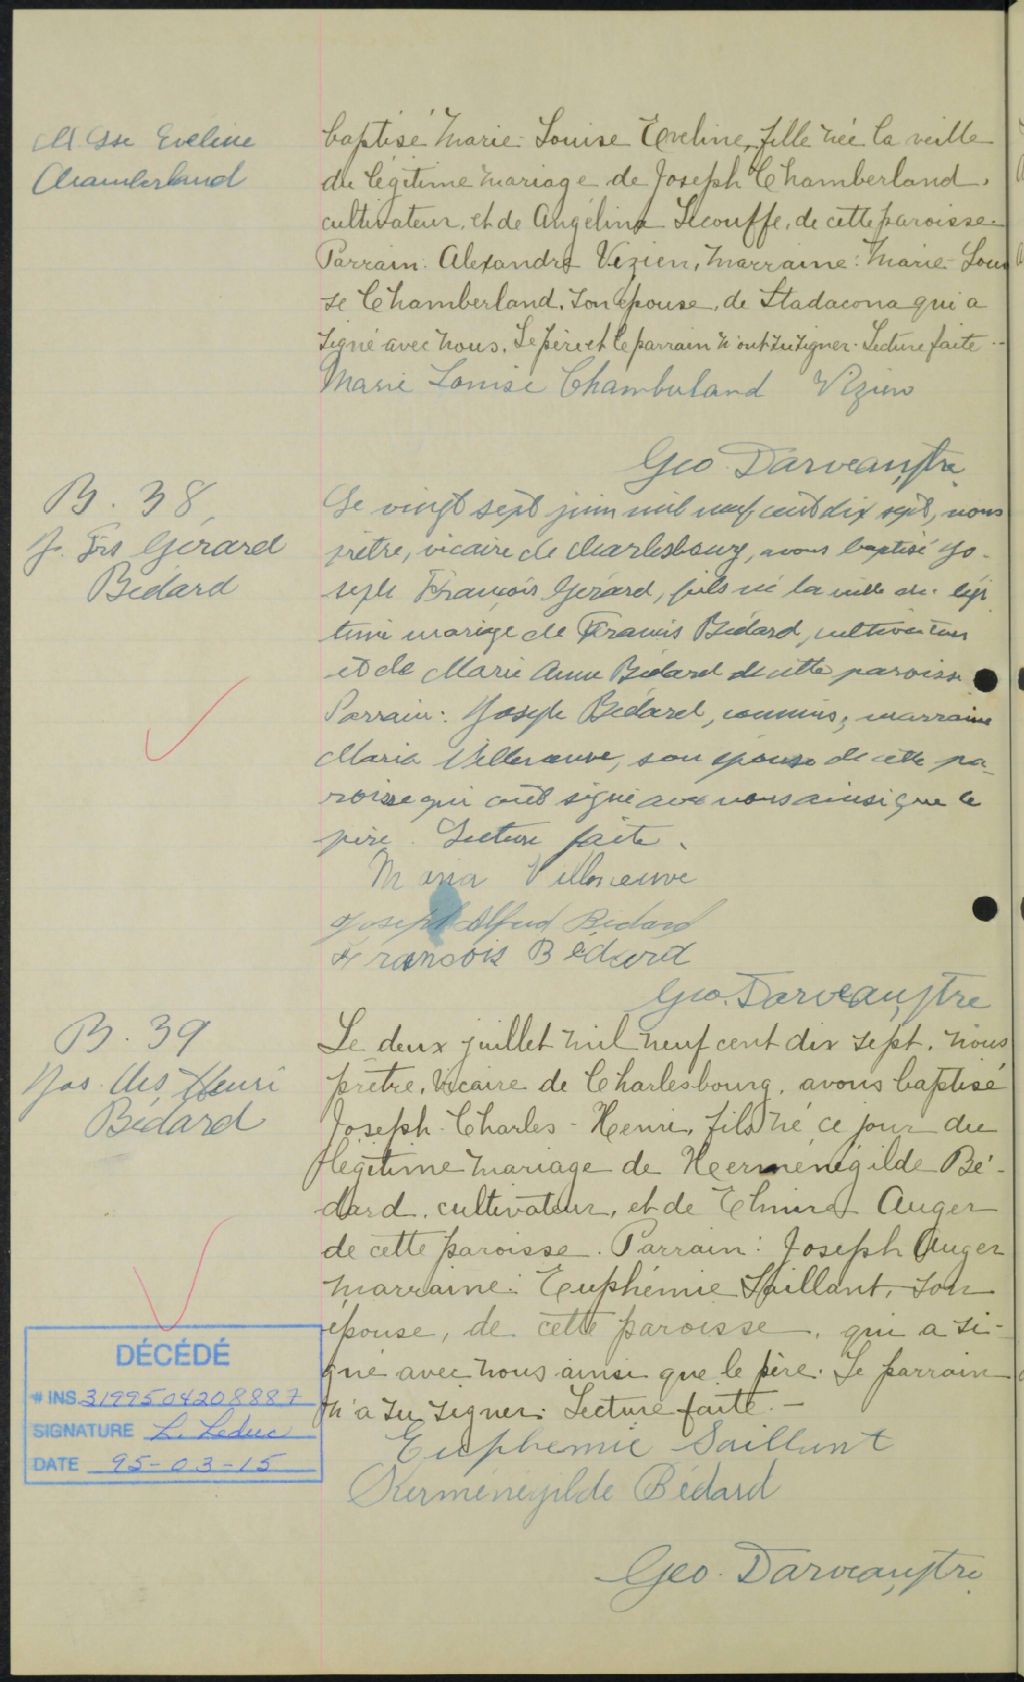 M. Lse Eveline
Chamberland
baptisé Marie-Louise Eveline, fille née la veille
du légitime mariage de Joseph Chamberland,
cultivateur, et de Angélina Lecouffe, de cette paroisse.
Parrain: Alexandre Vézien, marraine: Marie-Loui
se Chamberland, son épouse, de Stadacona qui a
signé avec nous. Le père et le parrain n'ont su signer. Lecture faite.-
Marie Louise Chamberland Vézien
Geo. Darveau, ptre
B. 38
J. Frs Gérard
Bédard
Le vingt sept juin mil neuf cent dix sept, nous
prêtre, vicaire de Charlesbourg, avons baptisé Jo-
seph François Gérard, fils né la veille du légi
time mariage de Francis Bédard, cultivateur
et de Marie Anne Bédard de cette paroisse
Parrain: Joseph Bédard, commis; marraine
Maria Villeneuve, son épouse de cette pa-
roisse qui ont signé avec nous ainsi que le
père. Lecture faite.
Maria Villeneuve
Joseph Alfred Bédard
François Bédard
Geo. Darveau, ptre
B. 39
Jos. Chs Henri
Bédard
Le deux juillet mil neuf cent dix sept, nous
prêtre, vicaire de Charlesbourg, avons baptisé
Joseph-Charles-Henri, fils né ce jour du
légitime mariage de Herménégilde Bé-
dard, cultivateur, et de Elmira Auger
de cette paroisse. Parrain: Joseph Auger
marraine: Euphémie Saillant, son
épouse, de cette paroisse, qui a si-
gné avec nous ainsi que le père. Le parrain
n'a su signer. Lecture faite.-
Euphemie Saillant
Herménégilde Bédard
Geo. Darveau, ptre
DÉCÉDÉ
# INS 3199504208887
SIGNATURE L. Leduc
DATE 95-03-15